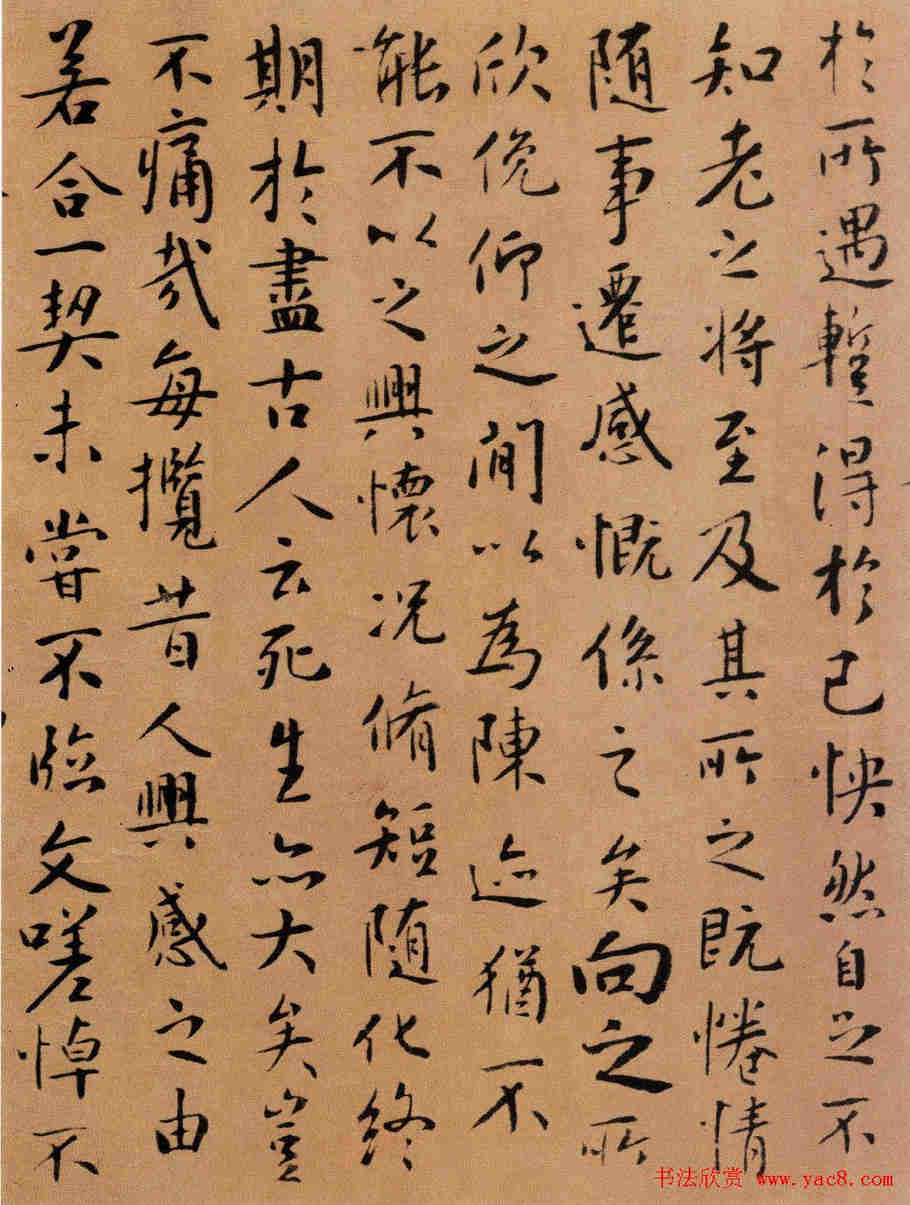 於所遇暫得於己怏然自之不
知老之將至及其所之既惓情
随事遷感慨係之矣向之所
欣俛仰之間以為陳迹猶不
能不以之興懷況脩短随化終
期於盡古人云死生亦大矣豈
不痛哉每攬昔人興感之由
若合一契未嘗不臨文嗟悼不
书法欣赏 www.yac8.com